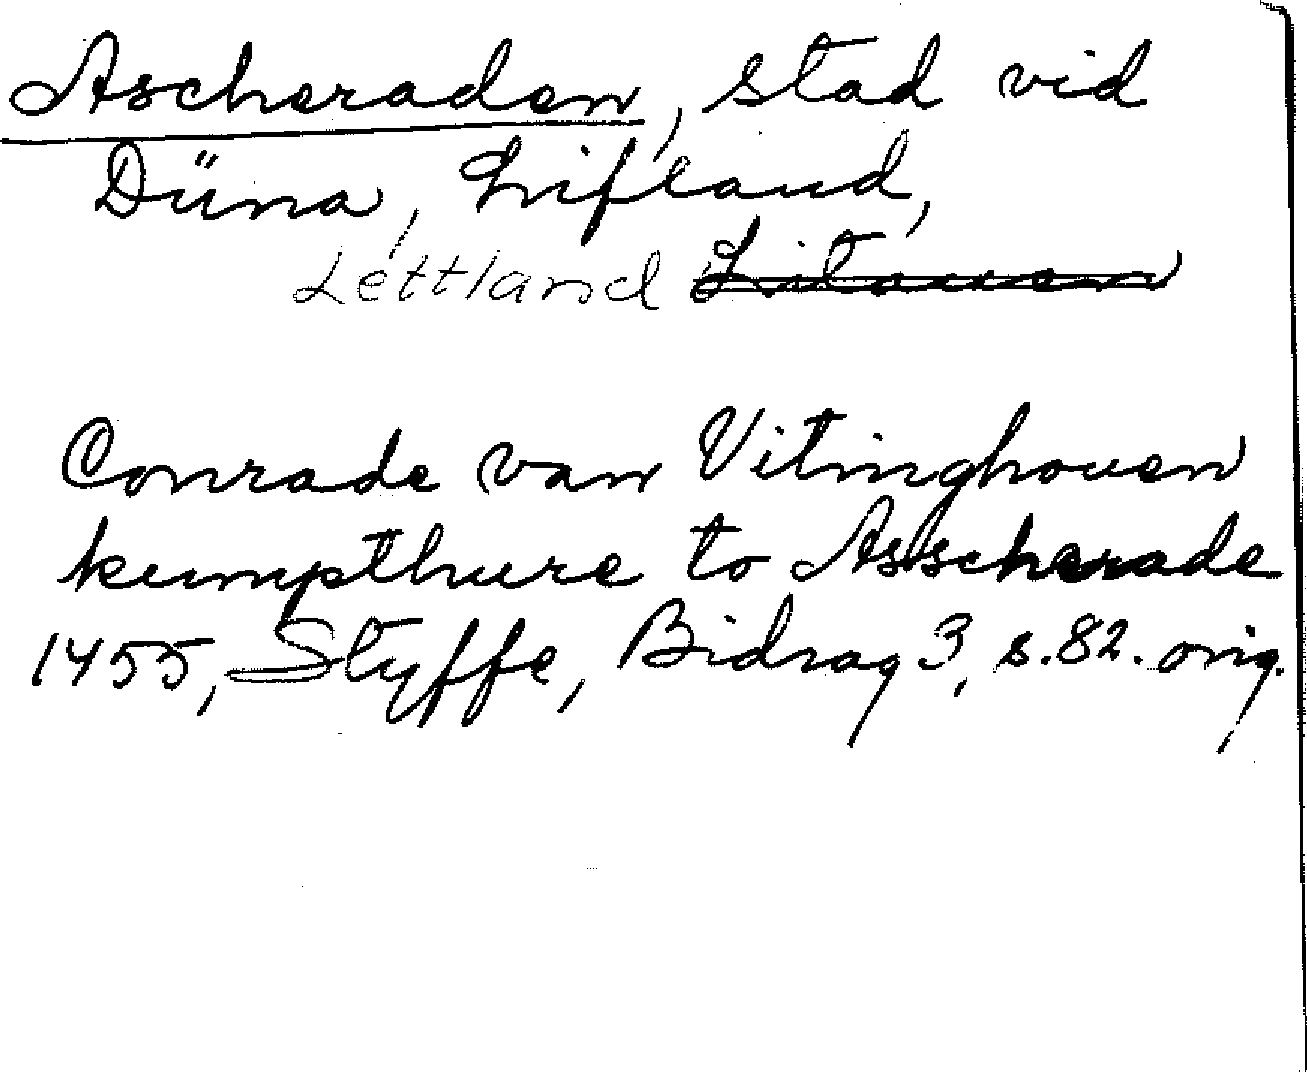 Ascheraden, stad vid
Düna, Lifland,
Lettland Litauen
Conrade van Vitinghouen
kumpthure to Asscherade
1455, Styffe, Bidrag 3, s. 82. orig.